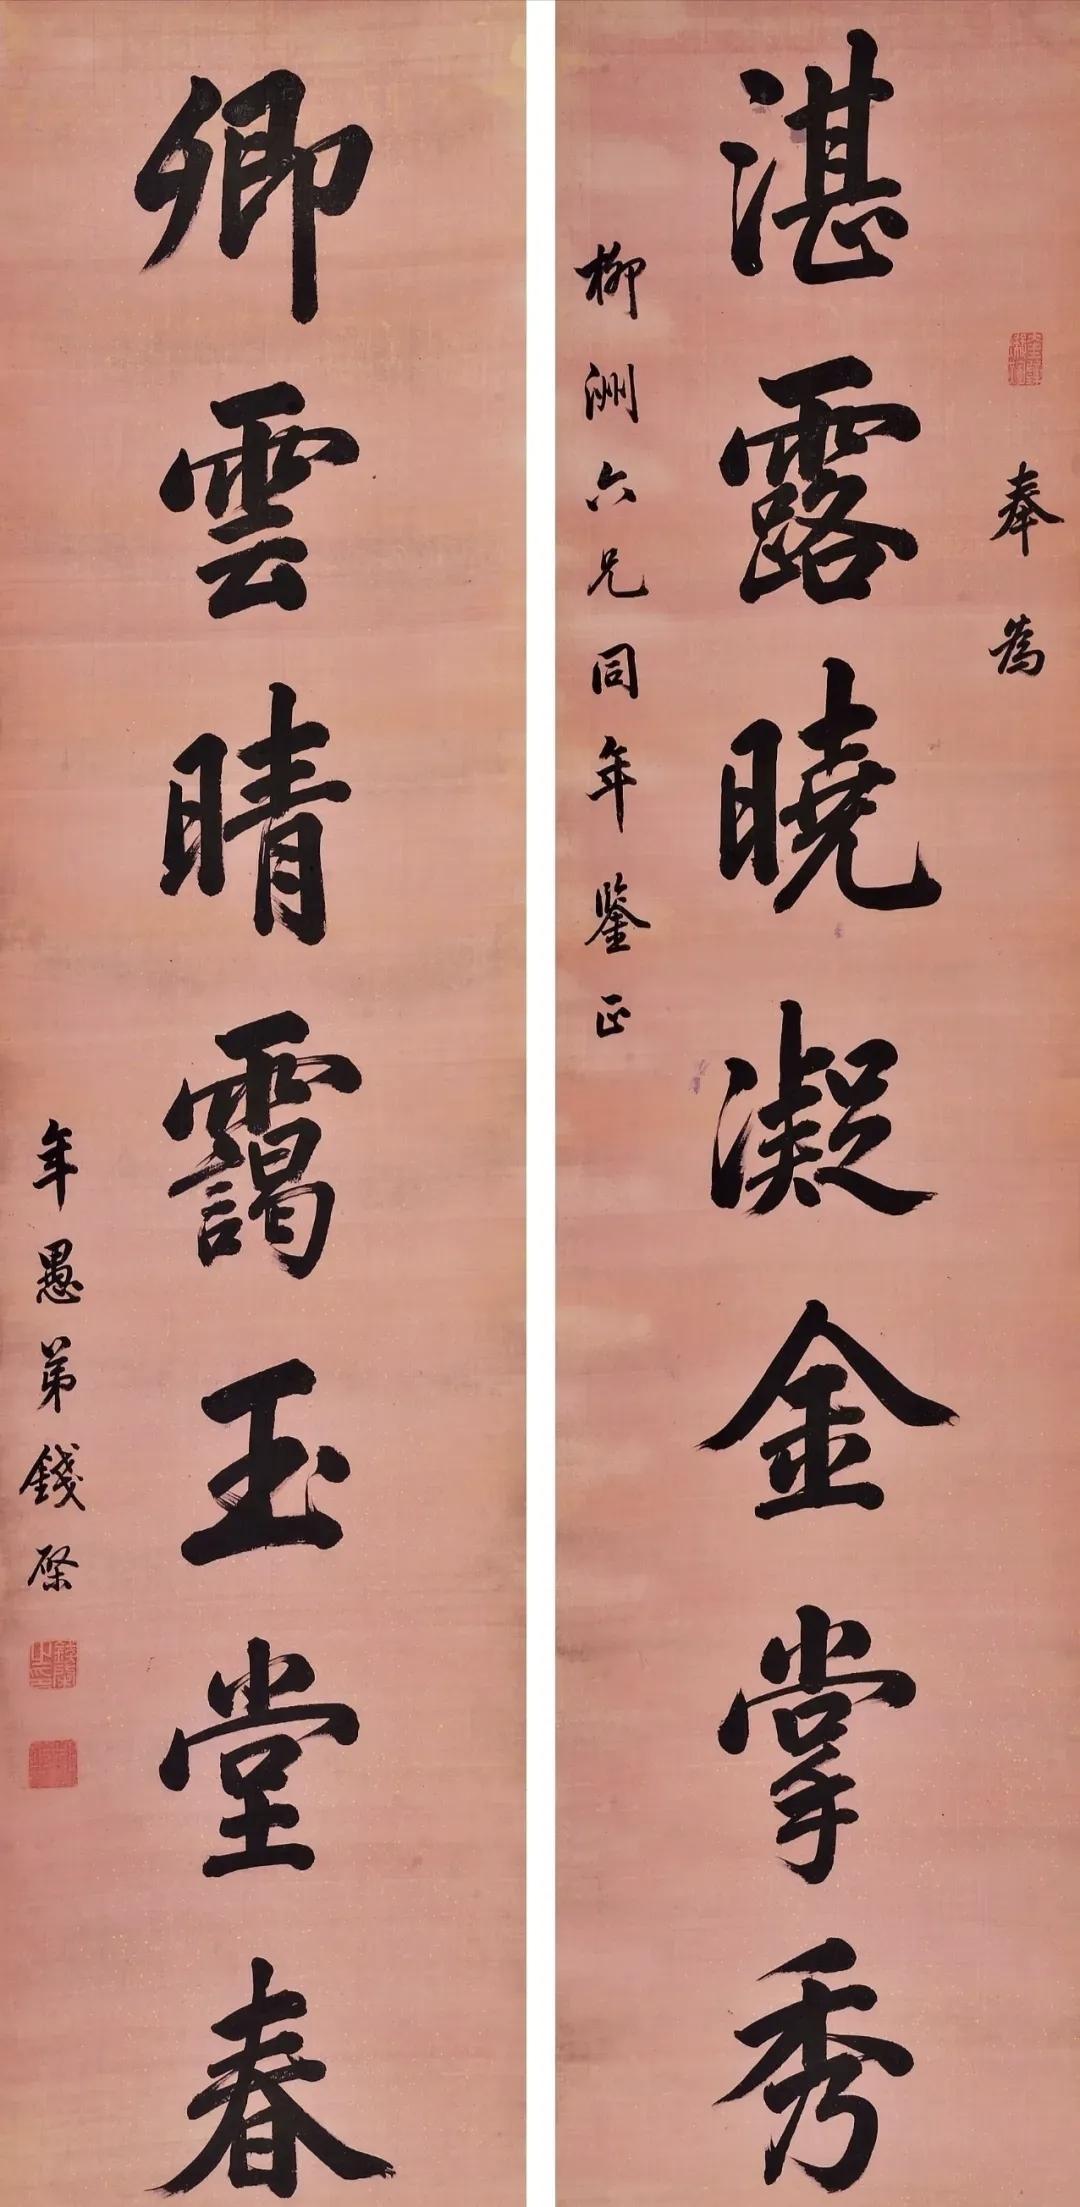 湛露曉凝金掌秀
奉為
柳洲六兄同年鑒正
卿雲晴靄玉堂春
年愚弟錢棨